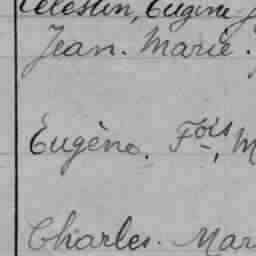 Célestin, Eugène
Jean. Marie.
Eugène. Fois, M
Charles. Mar